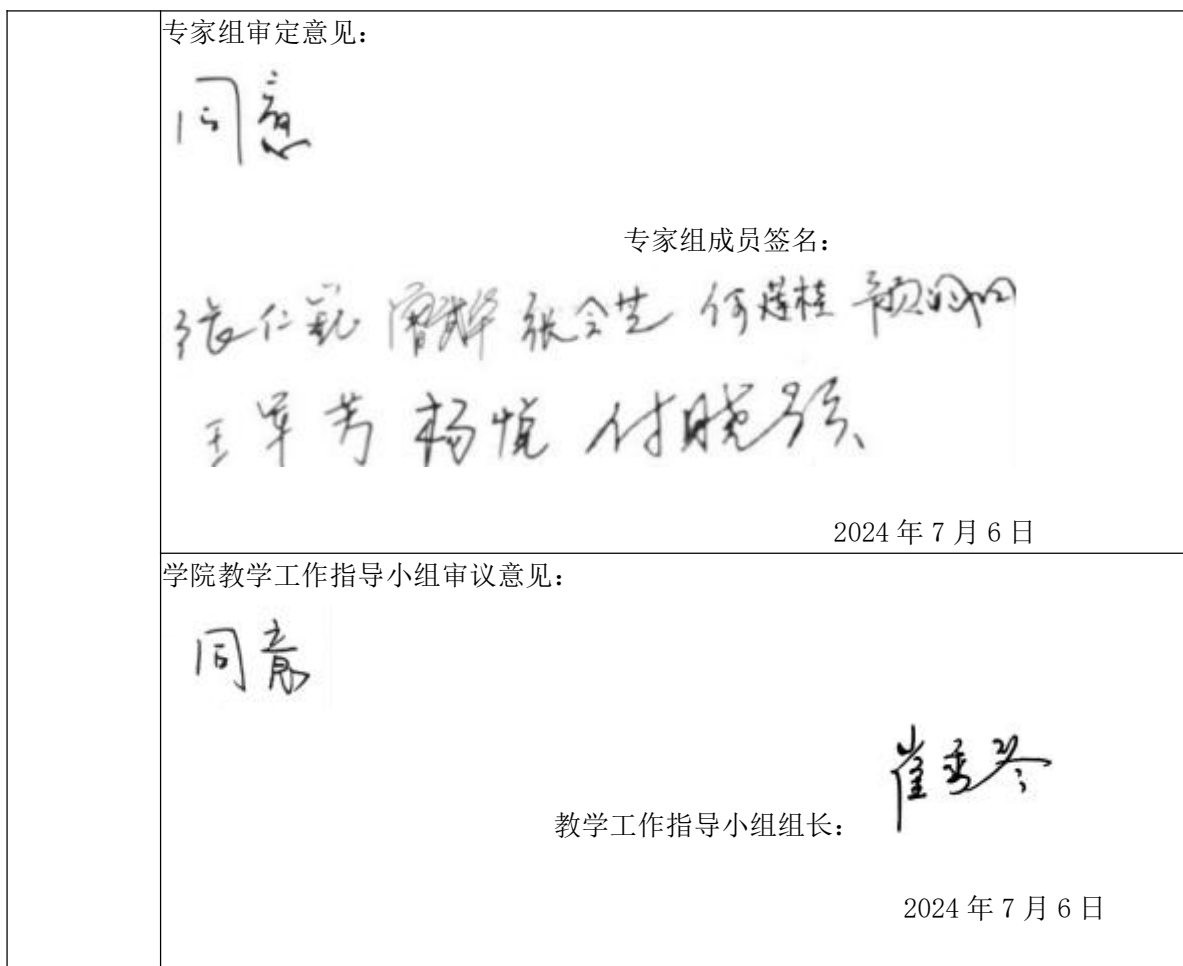 专家组审定意见：
同意
专家组成员签名：
张仁 张会芝 何莲桂
王军芳 杨悦 付晓强
2024年7月6日
学院教学工作指导小组审议意见：
同意
崔秀琴
教学工作指导小组组长：
2024年7月6日